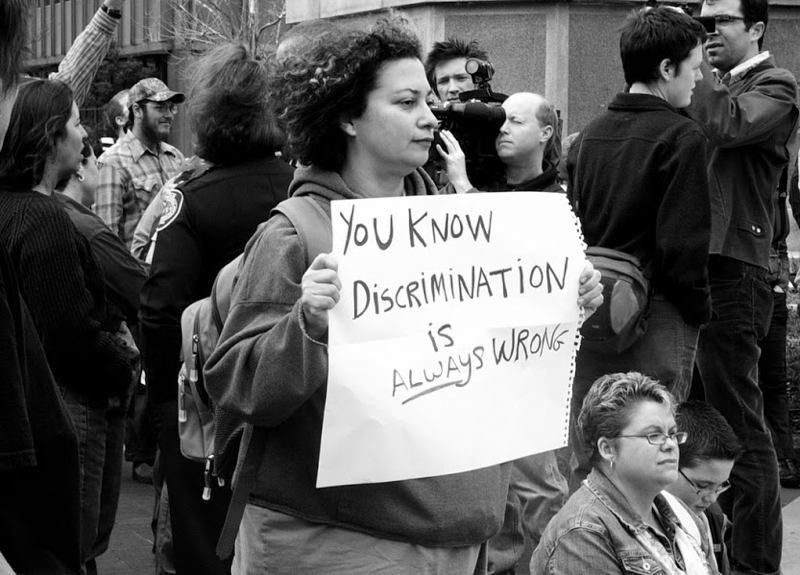 YOU KNOW
DISCRIMINATION
is
ALWAYS WRONG